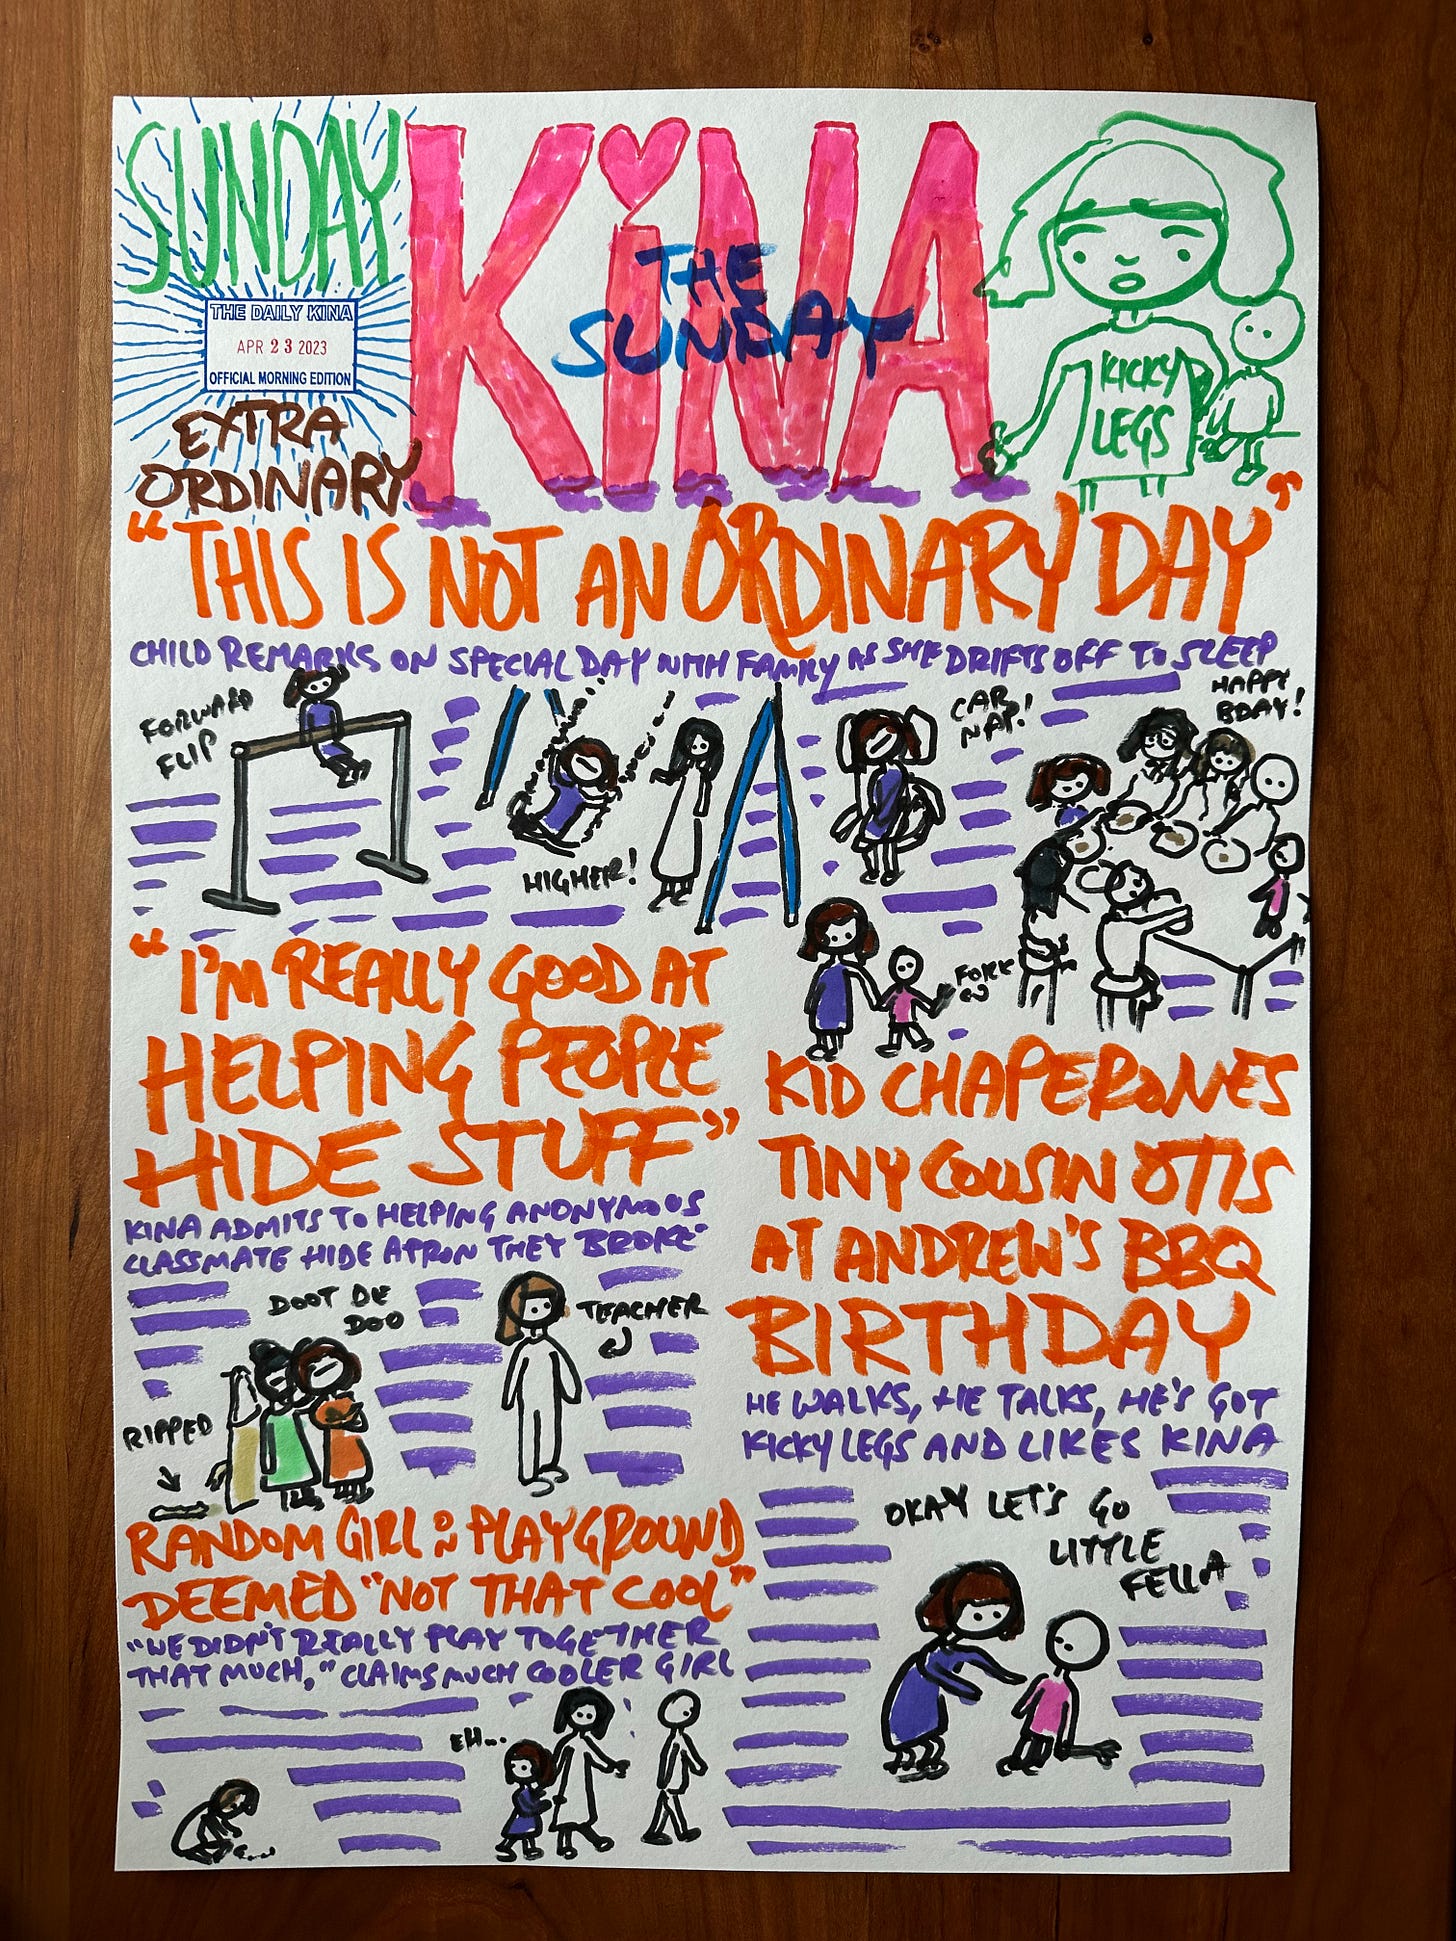 SUNDAY
THE DAILY KINA
APR 23 2023
OFFICIAL MORNING EDITION
EXTRA
ORDINARY
KiNA
THE
SUNDAY
KICKY
LEGS
"THIS IS NOT AN ORDINARY DAY"
CHILD REMARKS ON SPECIAL DAY WITH FAMILY AS SHE DRIFTS OFF TO SLEEP
FORWARD
FLIP
HIGHER!
CAR
NAP!
HAPPY
BDAY!
FORK
"I'M REALLY GOOD AT
HELPING PEOPLE
HIDE STUFF"
KINA ADMITS TO HELPING ANONYMOUS
CLASSMATE HIDE APRON THEY BROKE
DOOT DE
DOO
TEACHER
RIPPED
KID CHAPERONES
TINY COUSIN OTIS
AT ANDREW'S BBQ
BIRTHDAY
HE WALKS, HE TALKS, HE'S GOT
KICKY LEGS AND LIKES KINA
OKAY LET'S GO
LITTLE
FELLA
RANDOM GIRL ON PLAYGROUND
DEEMED "NOT THAT COOL"
"WE DIDN'T REALLY PLAY TOGETHER
THAT MUCH," CLAIMS MUCH COOLER GIRL
EH...